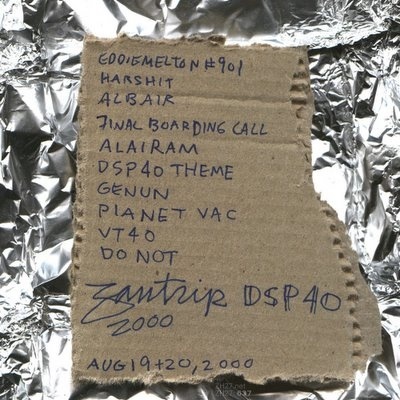 EDDIEMELTON #901
HARSHIT
ALBAIR
FINAL BOARDING CALL
ALAIRAM
DSP40 THEME
GENUN
PLANET VAC
VT40
DO NOT
zantrip DSP40
2000
AUG 19+20, 2000
ZH27.net
ZH27_037